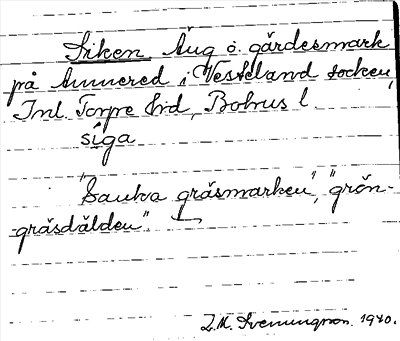 Siken Äng o. gärdesmark
på Annered i Vesteland socken
Inl. Torpe hrd, Bohus l.
siga
"Sanka gräsmarken", "grön-
gräsdälden".
Z.M. Svenungson. 1940.